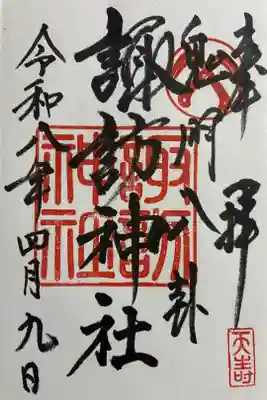 奉拝
鬼門八卦
諏訪神社
令和八年四月九日
諏訪神社
天寿